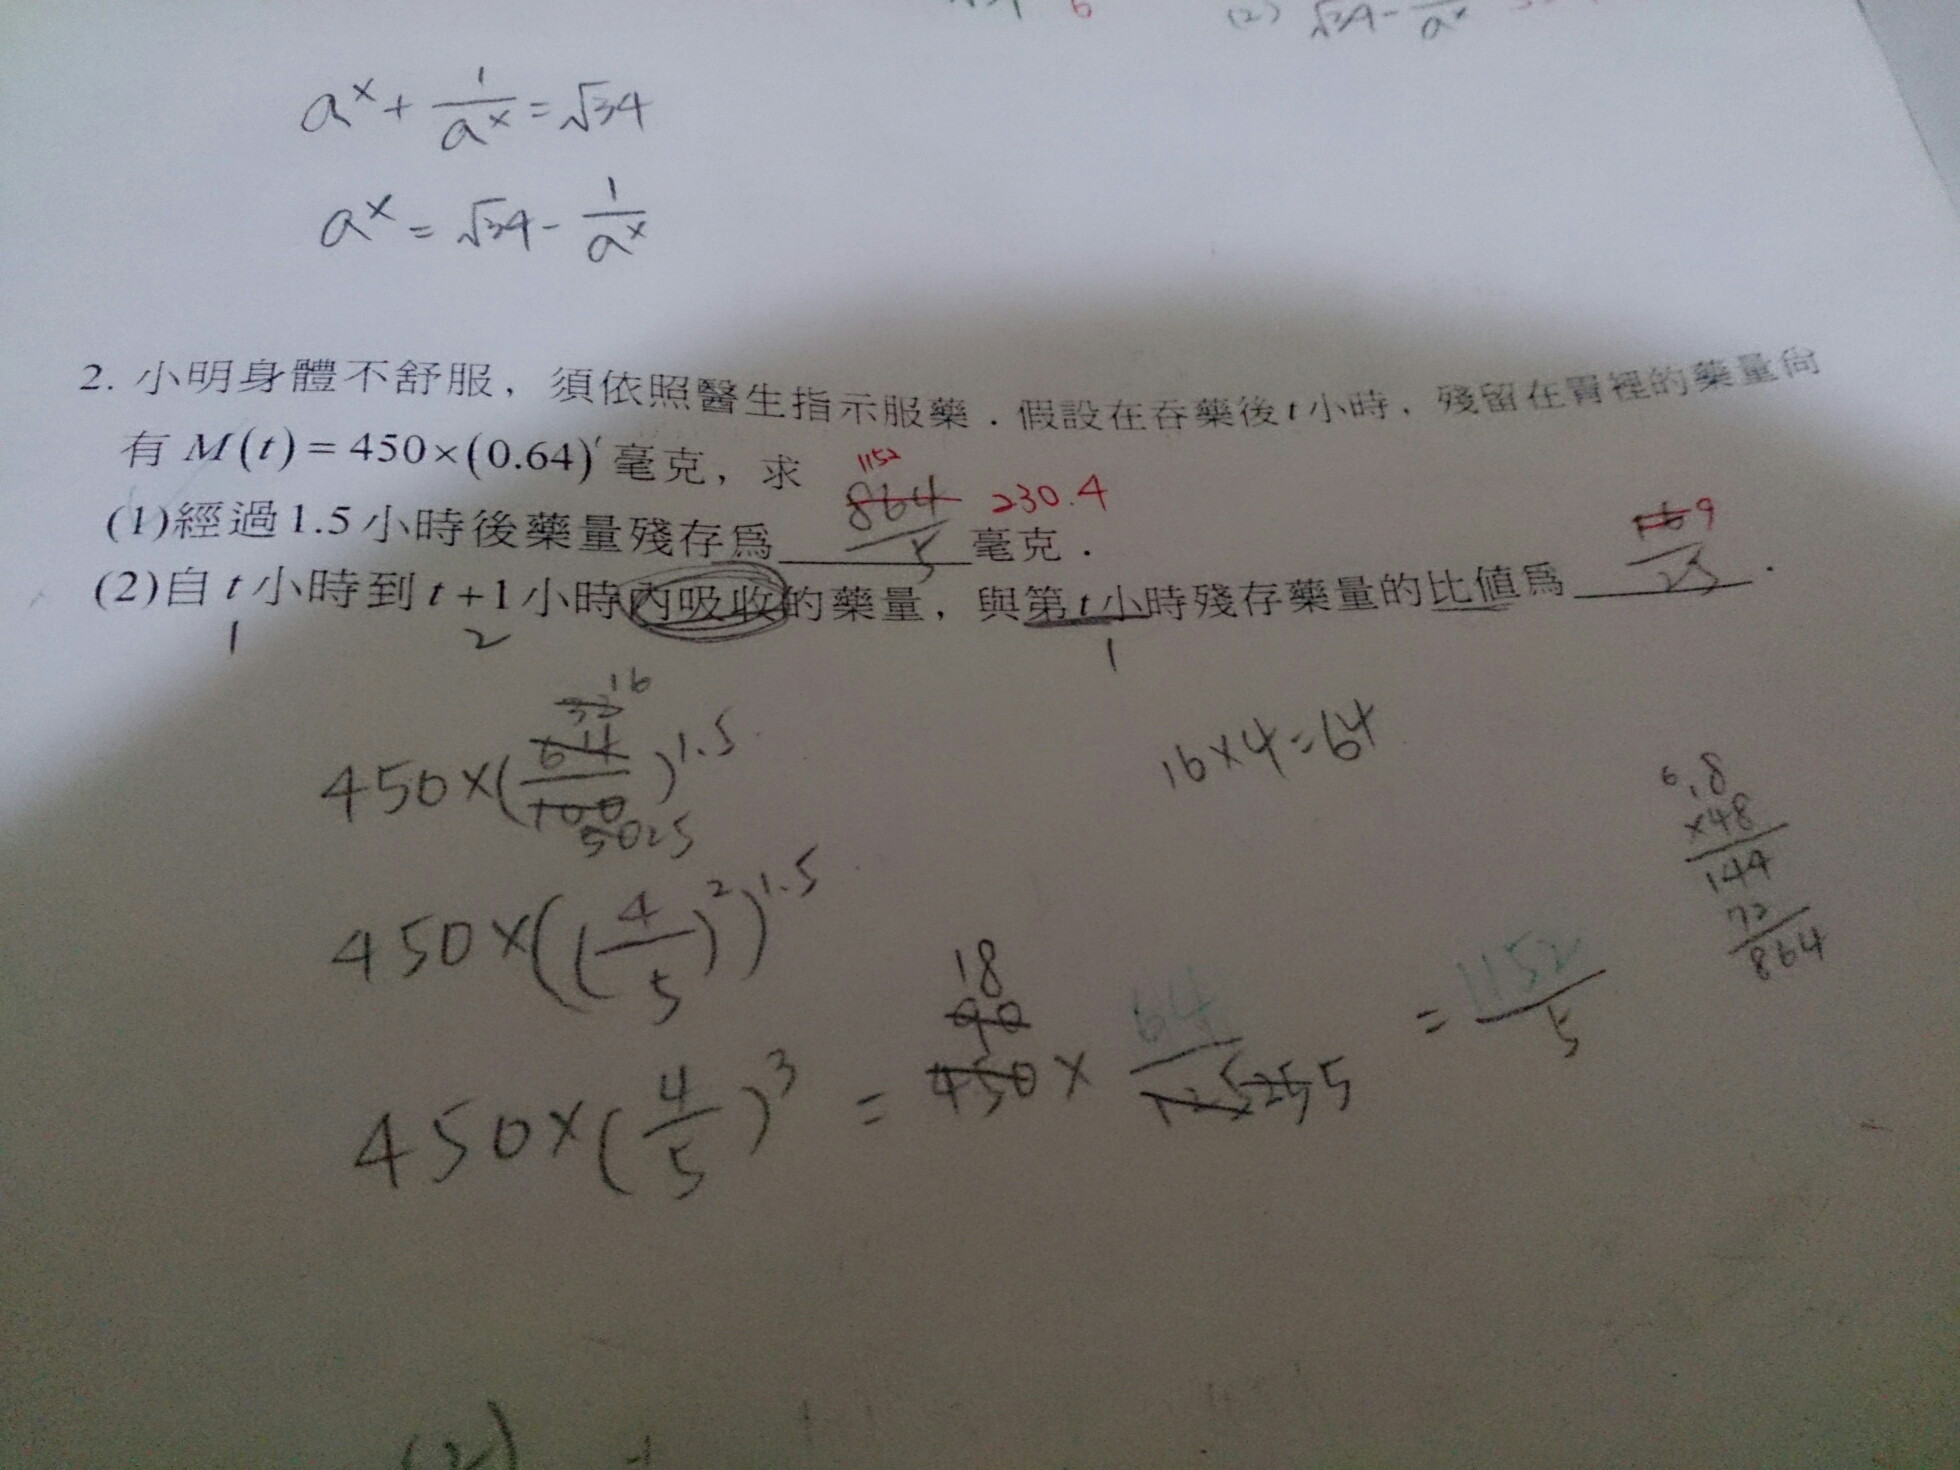 (2) √34 - 1/aˣ
aˣ + 1/aˣ = √34
aˣ = √34 - 1/aˣ
2. 小明身體不舒服，須依照醫生指示服藥．假設在吞藥後 t 小時，殘留在胃裡的藥量尚
有 M(t) = 450×(0.64)ᵗ 毫克，求
1152
(1)經過1.5小時後藥量殘存為 864/5 230.4 毫克．
(2)自 t 小時到 t+1 小時內吸收的藥量，與第 t 小時殘存藥量的比值為 9/25．
1 2 1
450×(64/100)^1.5 32 16 50 25
16×4=64
450×((4/5)²)^1.5
450×(4/5)³ = 450 × 64/125 = 1152/5
90 18 25 5
18
×48
144
72
864
(2)